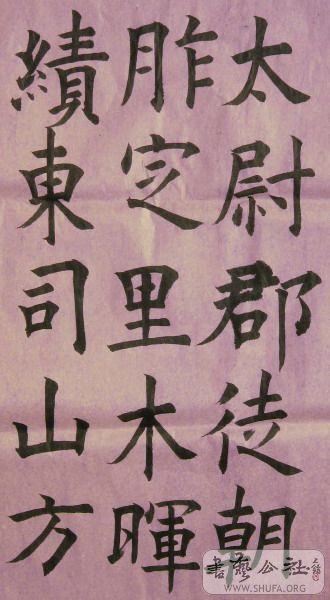 太尉郡徒朝
胙定里木暉
績東司山方
書藝公社
WWW.SHUFA.ORG